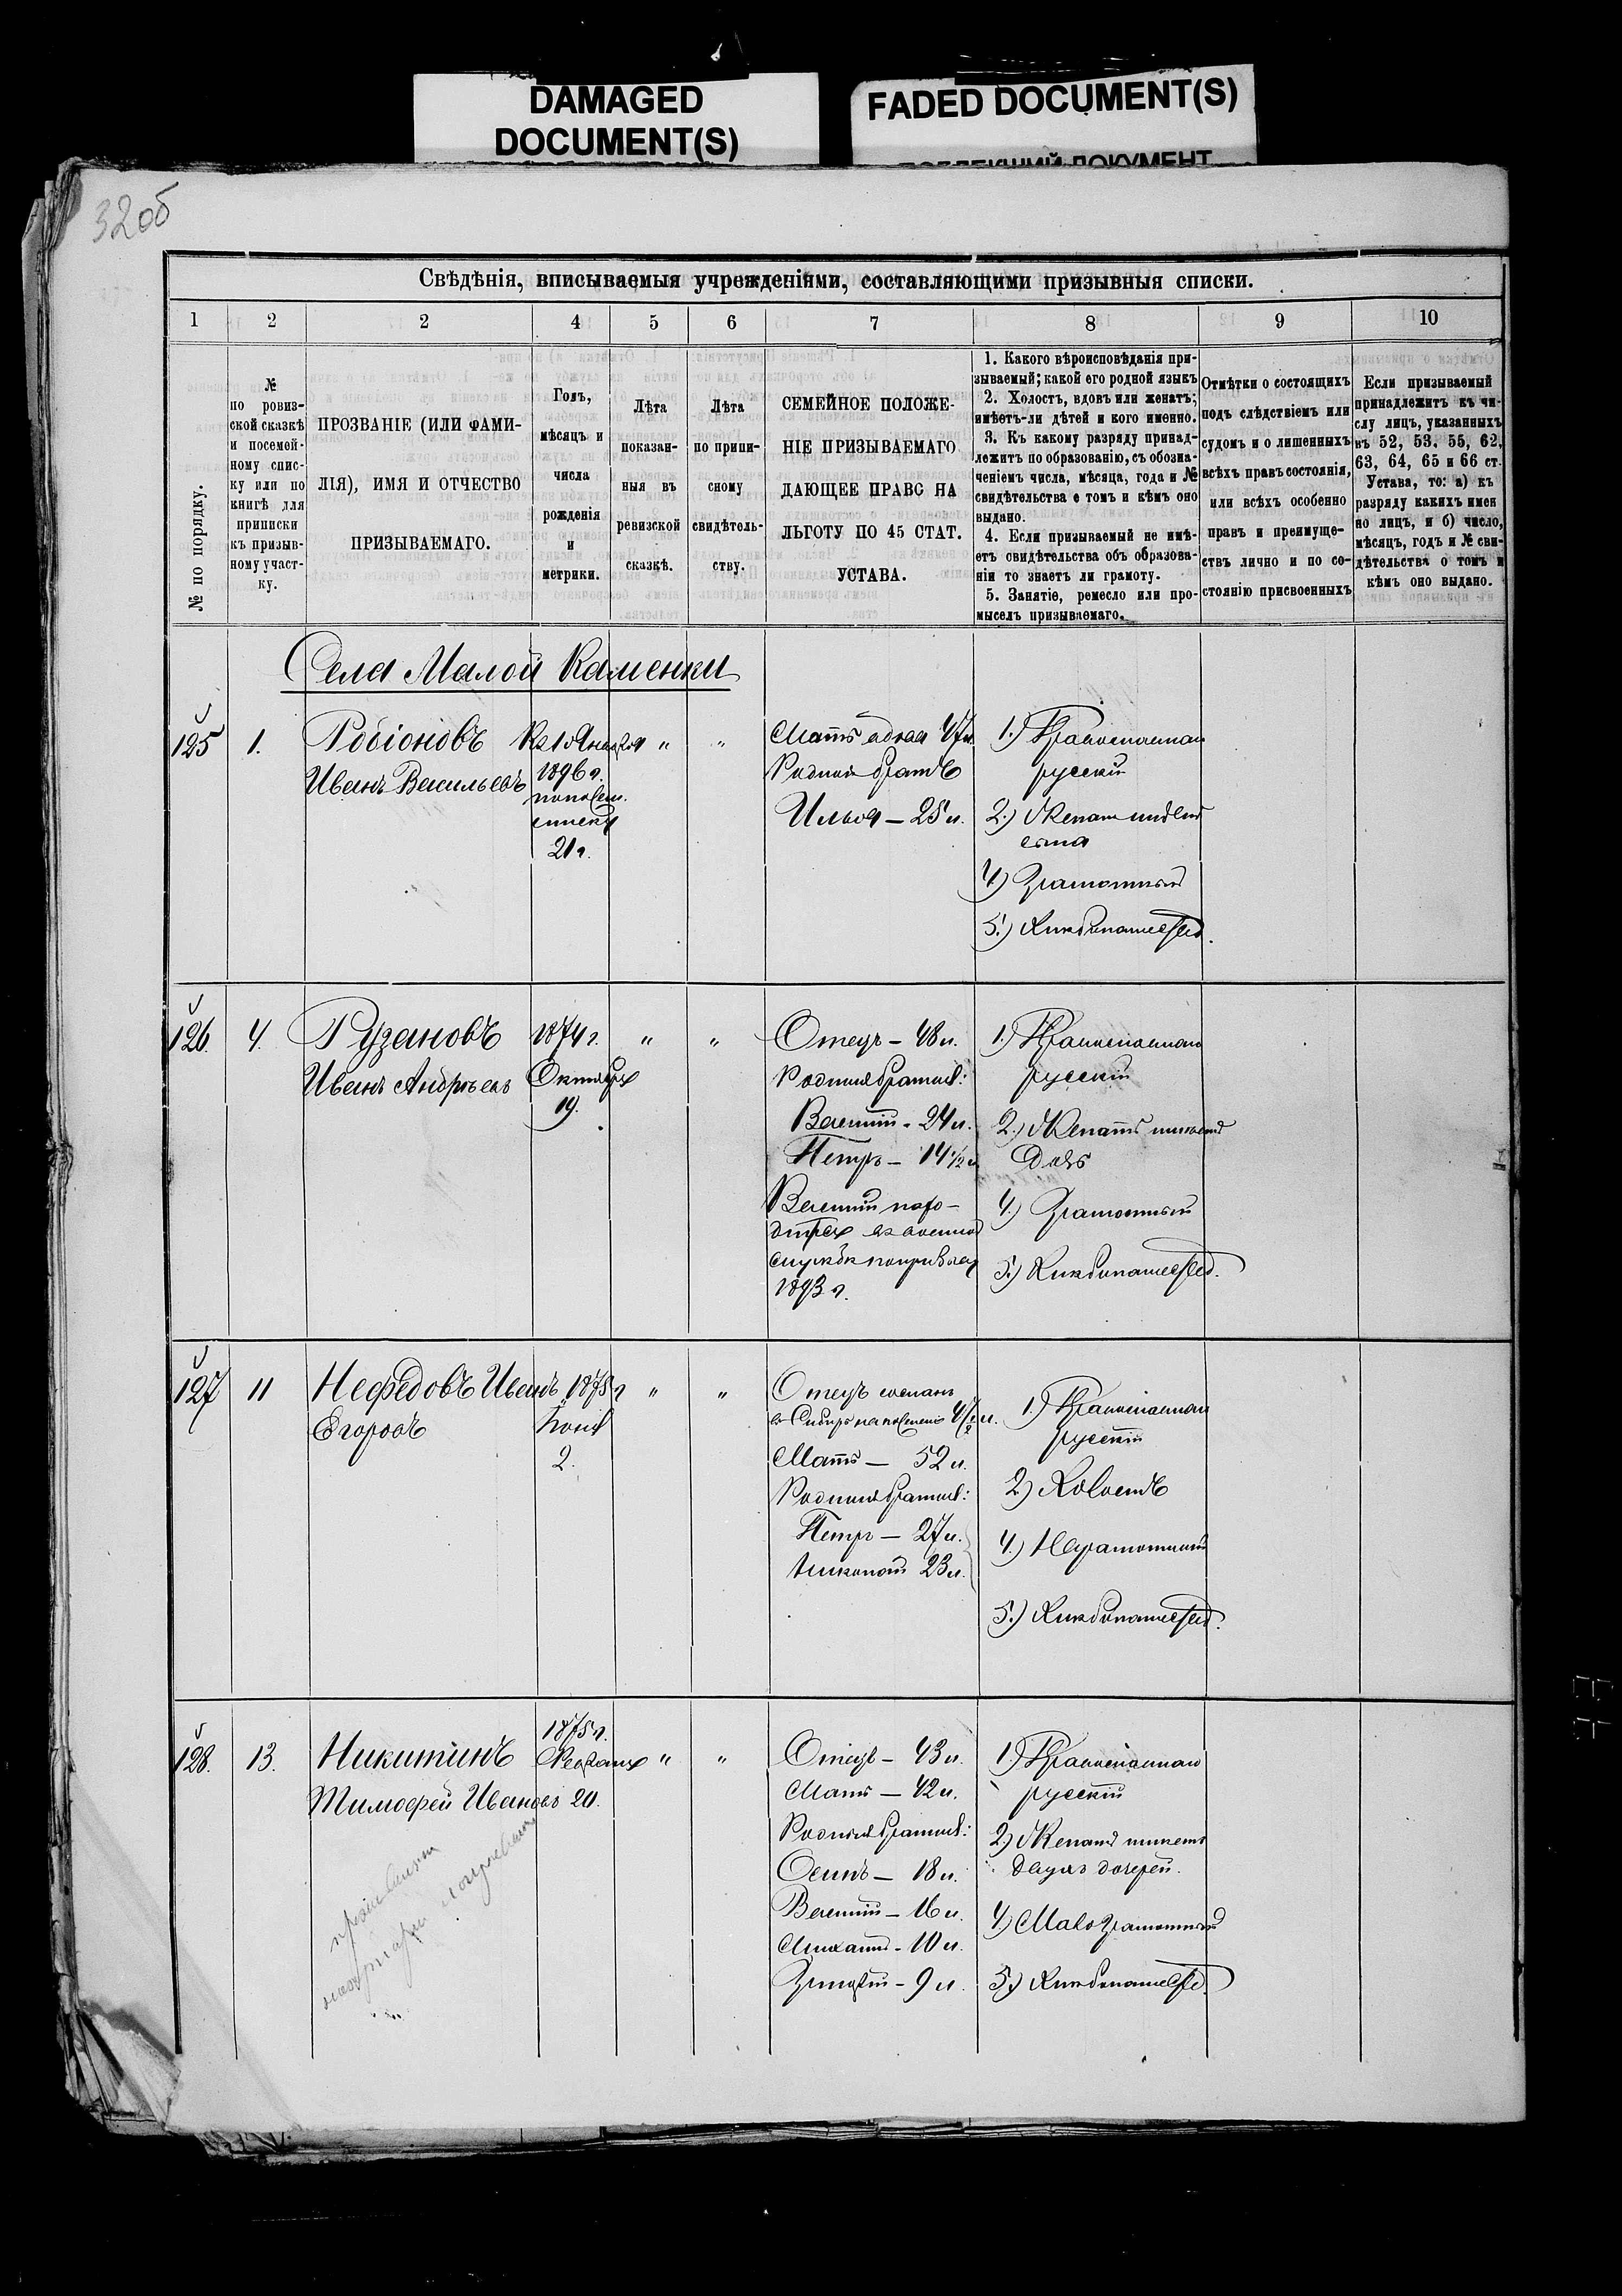 DAMAGED
DOCUMENT(S)
FADED DOCUMENT(S)
32об
Свѣдѣнія, вписываемыя учрежденіями, составляющими призывныя списки.
1 2 2 4 5 6 7 8 9 10
№ по порядку.
№
по ровиз-
ской сказкѣ
и посемей-
ному спис-
ку или по
книгѣ для
приписки
къ призыв-
ному участ-
ку.
ПРОЗВАНІЕ (ИЛИ ФАМИ-
ЛІЯ), ИМЯ И ОТЧЕСТВО
ПРИЗЫВАЕМАГО.
Годъ,
мѣсяцъ и
числа
рожденія
и
метрики.
Лѣта
показан-
ныя въ
ревизской
сказкѣ.
Лѣта
по припи-
сному
свидѣтель-
ству.
СЕМЕЙНОЕ ПОЛОЖЕ-
НІЕ ПРИЗЫВАЕМАГО
ДАЮЩЕЕ ПРАВО НА
ЛЬГОТУ ПО 45 СТАТ.
УСТАВА.
1. Какого вѣроисповѣданія при-
зываемый; какой его родной языкъ
2. Холостъ, вдовъ или женатъ;
имѣетъ-ли дѣтей и кого именно.
3. Къ какому разряду принад-
лежитъ по образованію, съ обозна-
ченіемъ числа, мѣсяца, года и №
свидѣтельства о томъ и кѣмъ оно
выдано.
4. Если призываемый не имѣ-
етъ свидѣтельства объ образова-
ніи то знаетъ ли грамоту.
5. Занятіе, ремесло или про-
мыселъ призываемаго.
Отмѣтки о состоящихъ
подъ слѣдствіемъ или
судомъ и о лишенныхъ
всѣхъ правъ состоянія,
или всѣхъ особенно
правъ и преимуще-
ствъ лично и по со-
стоянію присвоенныхъ
Если призываемый
принадлежитъ къ чи-
слу лицъ, указанныхъ
въ 52, 53. 55, 62,
63, 64, 65 и 66 ст.
Устава, то: а) къ
разряду какихъ имен
но лицъ, и б) число,
мѣсяцъ, годъ и № сви-
дѣтельства о томъ и
кѣмъ оно выдано.
Села Малой Каменки
125 1. Родіоновъ
Иванъ Васильевъ
Къ 1 Января
1896 г.
по посем.
списку
21 г.
" "
Мать вдова 47 л.
Родной братъ
Илья — 25 л.
1.) Православнаго
русскій
2.) Женатъ имѣетъ
сына
4) Грамотный
5.) Хлѣбопашество.
126. 4. Рузановъ
Иванъ Андрѣевъ
1874 г.
Октября
19.
" "
Отецъ — 48 л.
Родныя братья:
Василій - 24 л.
Петръ — 14 1/2 л
Василій нахо-
дится въ военной
службѣ по призыву
1893 г.
1.) Православнаго
русскій
2.) Женатъ имѣетъ
дочь
4.) Грамотный
5.) Хлѣбопашество.
127 11 Нефедовъ Иванъ
Егоровъ
1875 г
Іюня
2.
" "
Отецъ сосланъ
въ Сибирь на поселеніе
Мать — 52 л.
Родныя братья:
Петръ — 27 л.
23 л.
1.) Православнаго
русскій
2.) Холостъ
4.) Неграмотный
5.) Хлѣбопашество.
128. 13. Никитинъ
Тимофей Ивановъ
1875 г.
Февраля
20.
" "
Отецъ — 43 л.
Мать — 42 л.
Родныя братья:
Осипъ — 18 л.
Василій — 16 л.
Михаилъ - 10 л.
Григорій - 9 л.
1.) Православнаго
русскій
2.) Женатъ имѣетъ
двухъ дочерей.
4) Малограмотный
5.) Хлѣбопашество.